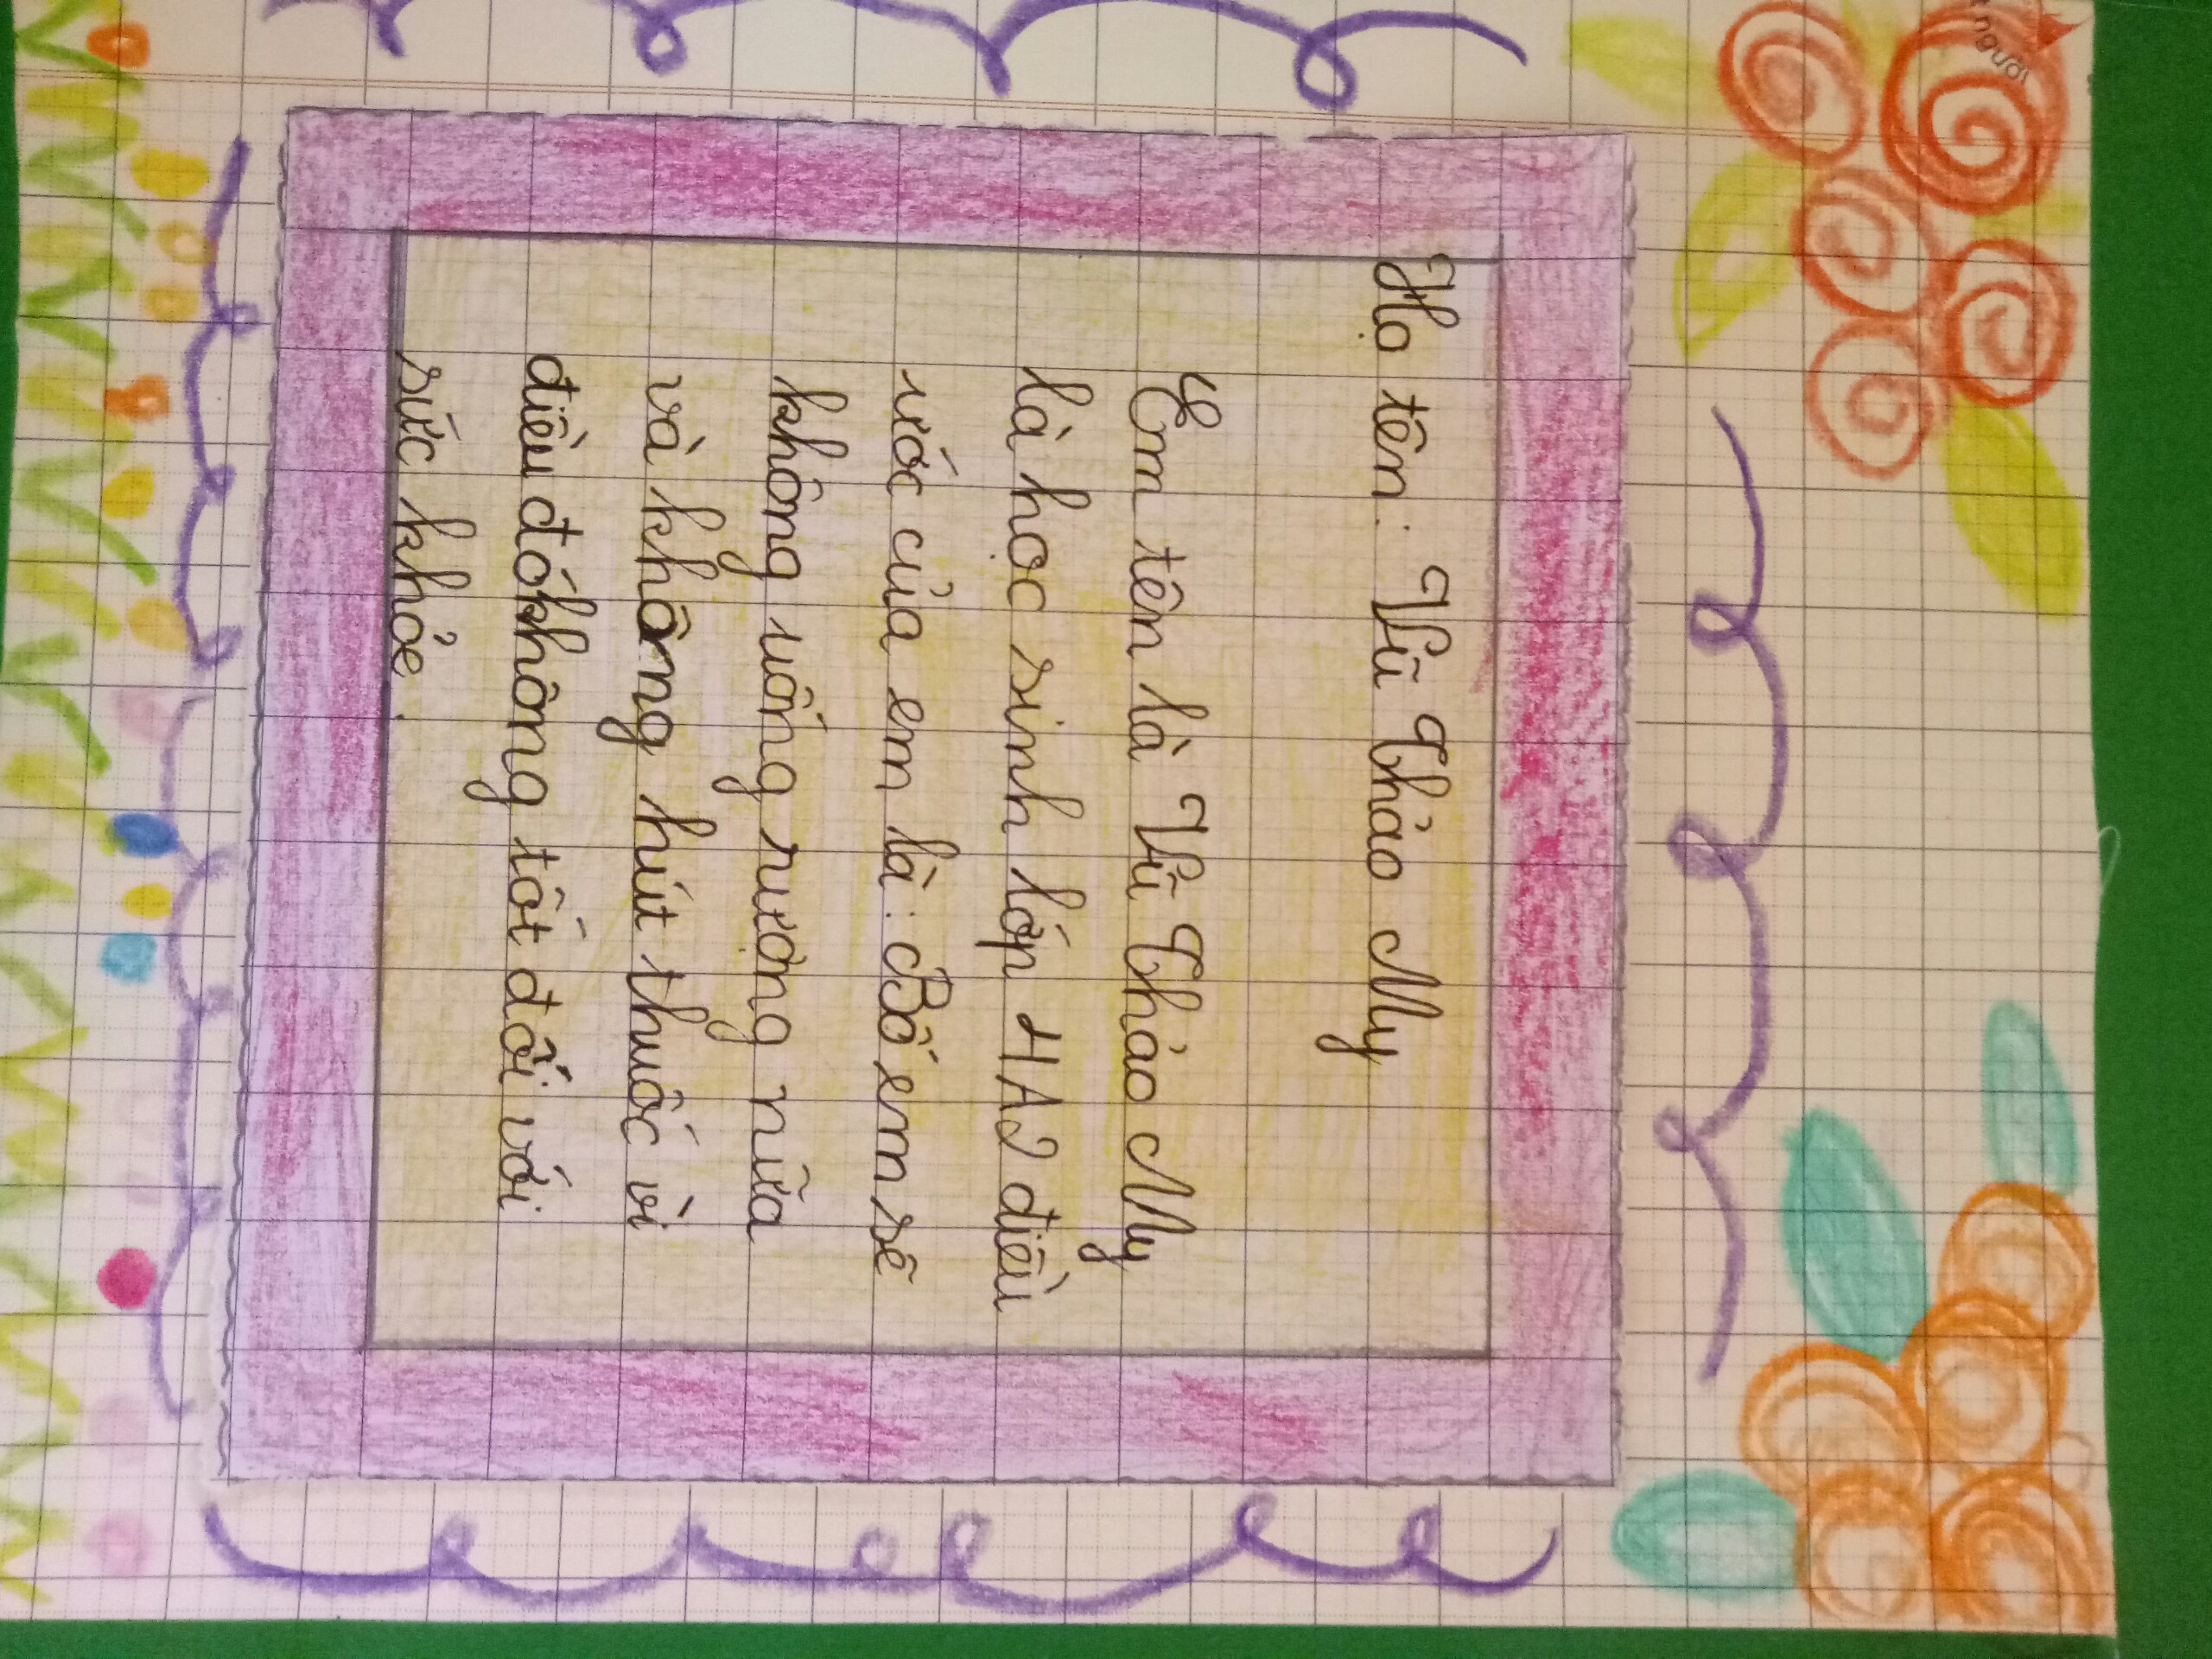 người
Họ tên: Vũ Thảo My
Em tên là Vũ Thảo My
là học sinh lớp 4A2 điều
ước của em là: Bố em sẽ
không uống rượng nữa
và không hút thuốc vì
điều đó không tốt đối với
sức khỏe.